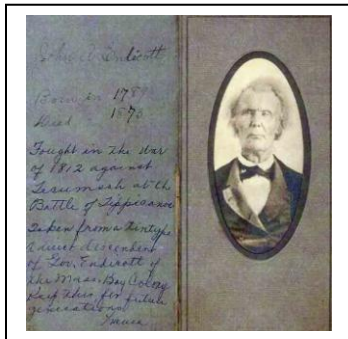 John A. Endicott
Born in 1789
Died 1873
Fought in the War
of 1812 against
Tecumseh at the
Battle of Tippicanoe
Taken from a tintype
A direct descendent
of Gov. Endicott of
the Mass. Bay Colony
Keep this for future
generations